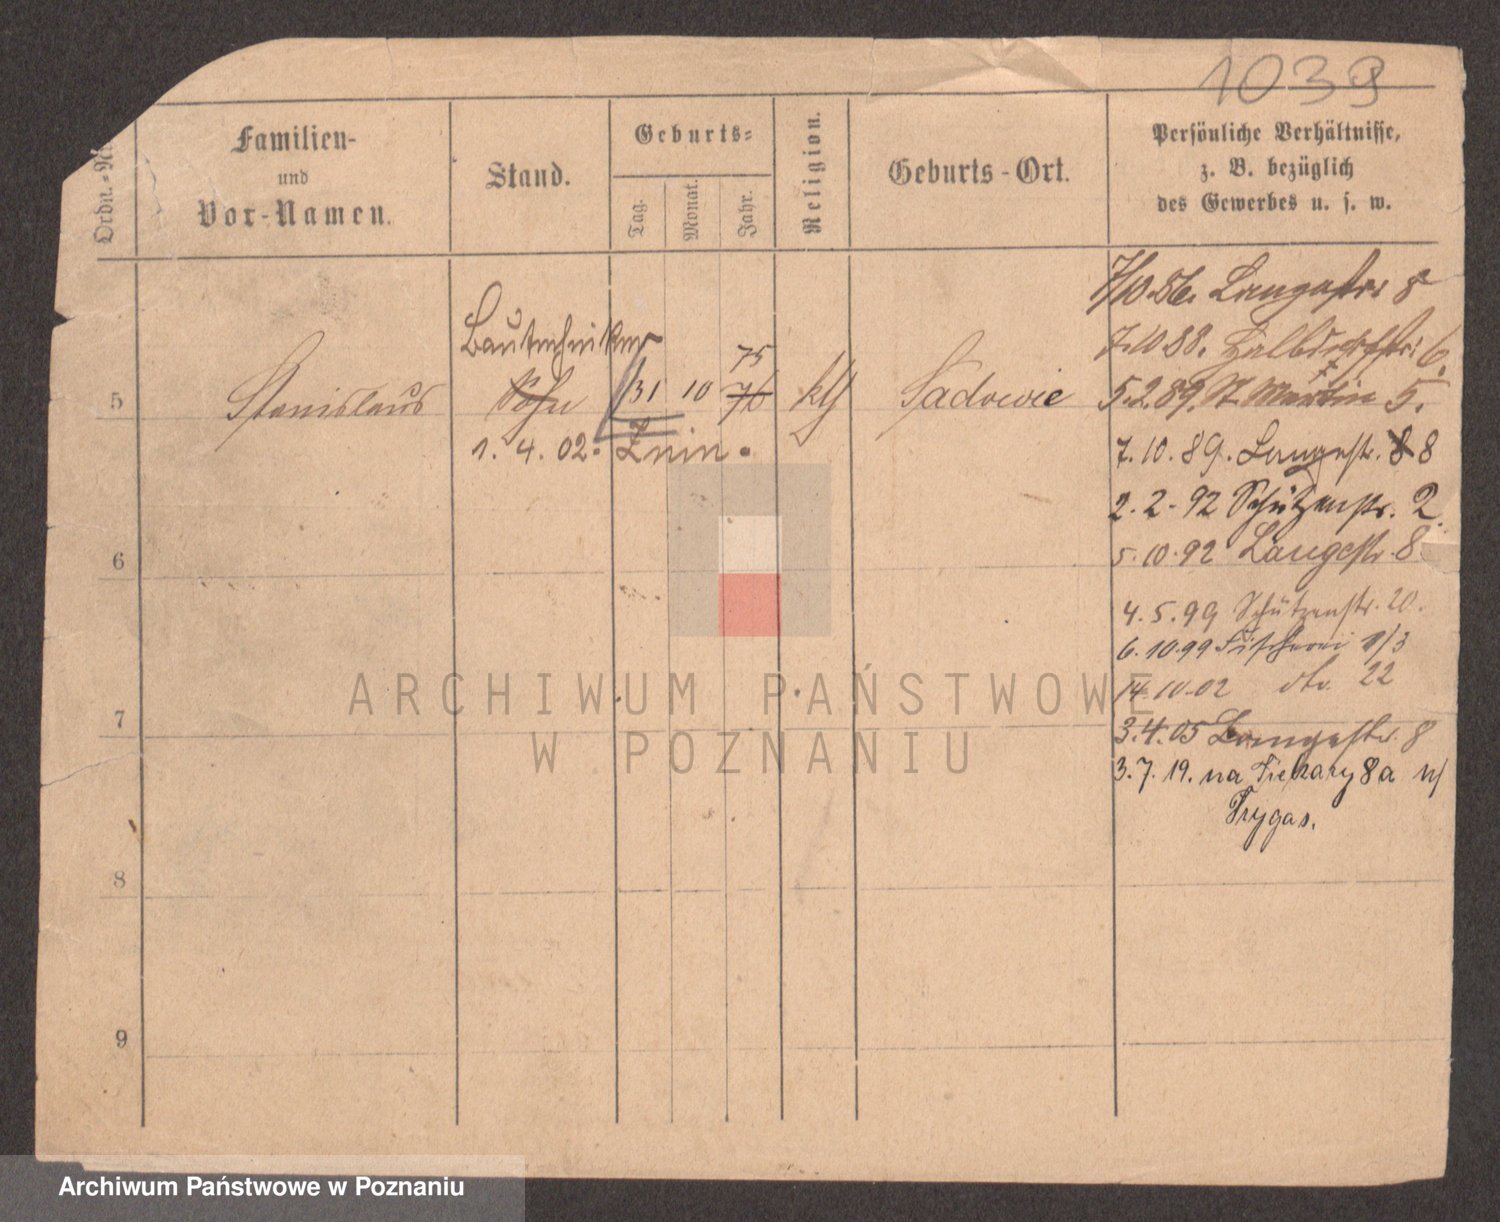 1039
Ordn.-Nr.
Familien-
und
Vor-Namen.
Stand.
Geburts-
Tag.
Monat.
Jahr.
Religion.
Geburts-Ort.
Persönliche Verhältnisse,
z. B. bezüglich
des Gewerbes u. s. w.
Bautechniker
75
5 Stanislaus Sohn 31 10 76 kth Sadowie
1. 4. 02. Znin.
7/10.86. Langestr. 8
7.10 88. Halbdorfstr. 6.
5.2.89. St. Martin 5.
7.10.89. Langestr. 8 8
2.2.92 Schützenstr. 2.
5.10.92 Langestr. 8.
4.5.99 Schützenstr. 20.
6.10.99 Fischerei 1/3
14.10.02 dto. 22
3.4.05 Langestr. 8
3.7.19. na Piekary 8a u/
Frygas.
6
7
8
9
ARCHIWUM PAŃSTWOWE
W POZNANIU
Archiwum Państwowe w Poznaniu